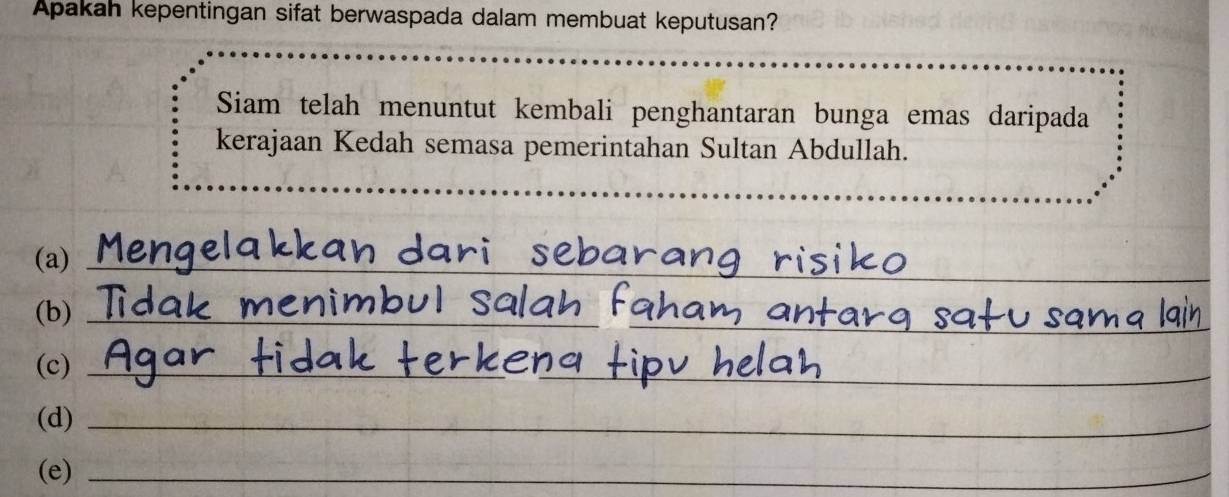 Apakah kepentingan sifat berwaspada dalam membuat keputusan?
Siam telah menuntut kembali penghantaran bunga emas daripada
kerajaan Kedah semasa pemerintahan Sultan Abdullah.
(a) Mengelakkan dari sebarang risiko
(b) Tidak menimbul salah faham antara satu sama lain
(c) Agar tidak terkena tipu helah
(d)
(e)